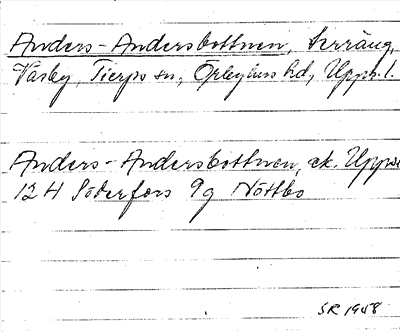 Anders-Andersbottnen, terräng,
Vasby, Tierps sn, Örbyhus hd, Upps. l.
Anders-Andersbottnen, ek. Upps
12 H Söderfors 9g Nöttbo
SR 1948